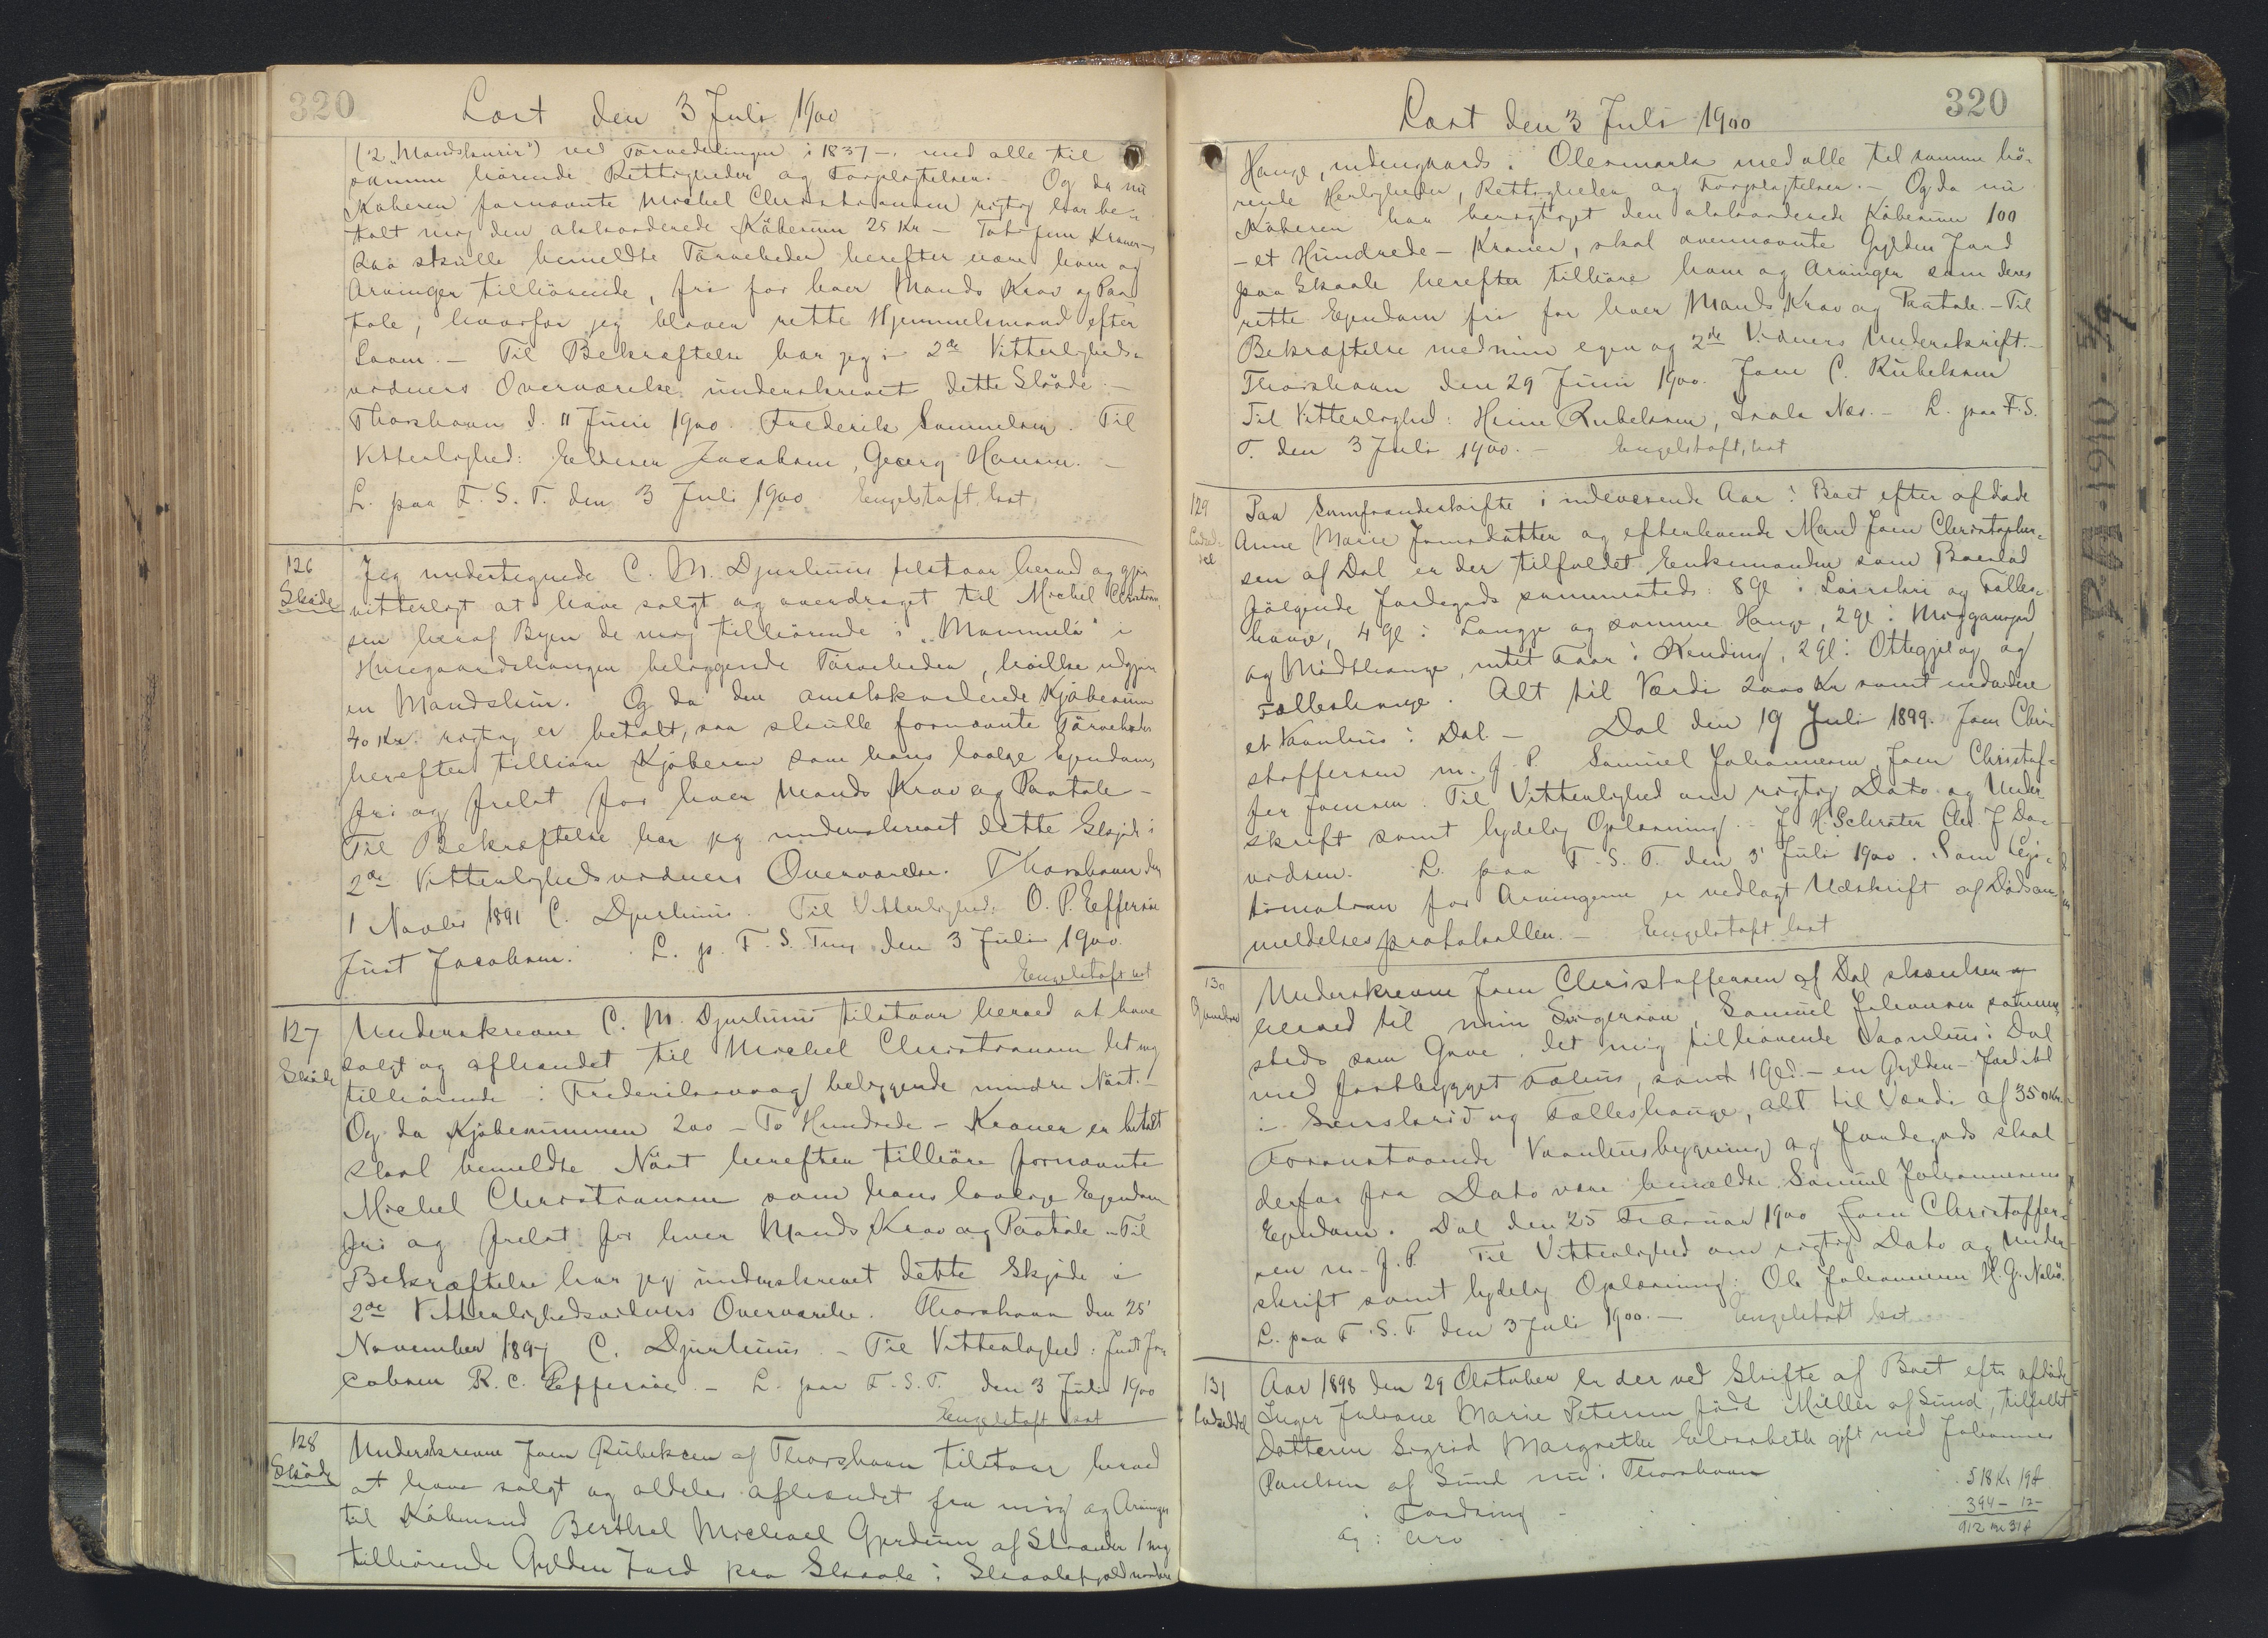 320
Læst den 3 Juli 1900
("2 Mandskurir") ved Törvedelingen i 1837 – med alle til
samme hörende Rettigheder og Forpligtelser. Og da nu
Köberen fornævnte Michel Christiansen rigtig har be-
talt mig den akkorderede Köbesum 25 Kr – Tot fem Kroner –
saa skulle bemeldte Törveheder herefter være ham og
Arvinger tilhörende, fri for hver Mands Krav og Paa
tale, hvorfor jeg bliver rette Hjemmelsmand efter
Loven. – Til Bekræftelse har jeg i 2de Vitterligheds-
vidners Overværelse underskrevet dette Sköde. –
Thorshavn d. 11 Juni 1900. Frederik Samuelsen. Til
Vitterlighed: Jacobsen, Georg Hansen. –
L. paa F. S. T. den 3 Juli 1900 Engelstoft, kst
126
Sköde
Jeg undertegnede C. M. Djurhuus tilstaar herved og gjør
vitterligt at have solgt og overdraget til Michel Christian-
sen heraf Byen de mig tilhörende i "Mammelá" i
Husegaardshaugen beliggende Törveheder, hvilke udgjør
en Mandskur. Og da den omakkorderede Kjöbesum
40 Kr. rigtig er betalt, saa skulle fornævnte Törveheder
herefter tilhöre Kjöberen som hans lovlige Ejendom,
fri og frelst for hver Mands Krav og Paatale –
Til Bekræftelse har jeg underskrevet dette Skjöde i
2de Vitterlighedsvidners Overværelse. Thorshavn den
1 Novbr 1891 C. Djurhuus. Til Vitterlighed: O. P. Effersöe
Just Jacobsen. L. p. F. S. Ting den 3 Juli 1900.
Engelstoft kst
127
Sköde
Underskrevne C. M. Djurhuus tilstaar herved at have
solgt og afhændet til Michel Christiansen det mig
tilhörende i Frederiksvaag beliggende mindre Nöst. –
Og da Kjöbesummen 200 – To Hundrede – Kroner er betalt
skal bemeldte Nöst herefter tilhöre fornævnte
Michel Christiansen som hans lovlige Ejendom
fri og frelst for hver Mands Krav og Paatale – Til
Bekræftelse har jeg underskrevet dette Skjöde i
2de Vitterlighedsvidners Overværelse. Thorshavn den 25'
November 1897 C. Djurhuus. – Til Vitterlighed: Just Ja-
cobsen R. C. Effersöe. – L. paa F. S. T. den 3 Juli 1900
Engelstoft kst
128
Sköde
Underskrevne Joen Rubeksen af Thorshavn tilstaar herved
at have solgt og aldeles afhændet fra mig og Arvinger
til Købmand Berthel Michael Gjerdum af Strænder 1 mig
tilhörende Gylden Jord paa Skaale i Skaalefjold nordere
320
Læst den 3 Juli 1900
Hauge, indengaards i Olesmark med alle til samme hö-
rende Herligheder, Rettigheder og Forpligtelser. – Og da nu
Köberen har berigtiget den akkorderede Köbesum 100
– et Hundrede – Kroner, skal ovennævnte Gylden Jord
paa Skaale herefter tilhöre ham og Arvinger som deres
rette Ejendom fri for hver Mands Krav og Paatale. – Til
Bekræftelse med min egen og 2de Vidners Underskrift. –
Thorshavn den 29 Juni 1900. Joen C. Rubeksen
Til Vitterlighed: Heine Rubeksen, Næs. – L. paa F. S.
T. den 3 Juli 1900. – Engelstoft, kst
129
Lodsed-
del
Paa Samfrændeskifte i indeværende Aar i Boet efter afdöde
Anne Marie Joensdatter og efterlevende Mand Joen Christopher-
sen af Dal er der tilfaldet Enkemanden som Boeslod
fölgende Jordegods sammesteds: 8 Gl i og Fælles-
hauge, 4 Gl i Langje og samme Hauge, 2 gl i
og Midthauge, intet Faar i Kending, 2 gl i og
Fælleshauge. Alt til Værdi 2000 Kr samt endvidere
et Vaanhus i Dal. – Dal den 19 Juli 1899. Joen Chri-
stoffersen m. f. P. Samuel Johannesen, Joen Christof-
fer Joensen. Til Vitterlighed om rigtig Dato og Under-
skrift samt lydelig Oplæsning. – J H. Schröter Chr. J Da-
vidsen. L. paa F. S. T. den 3' Juli 1900. Som Legi-
timation for Arvingerne er vedlagt Udskrift af Dödsan-
meldelsesprotokollen. – Engelstoft kst
130
Gavebrev
Underskrevne Joen Christoffersen af Dal skænker
herved til min Svigersön, Samuel Johansen sammen-
steds som Gave, det mig tilhörende Vaanhus i Dal
med fastbygget Fæhus, samt 1 Gld. – en Gylden – Jord ibd
i og Fælleshauge, alt til Værdi af 350 Kr.
Foranstaaende Vaanhusbygning og Jordegods skal
derfor fra Dato være bemeldte Samuel Johannesens
Ejendom. Dal den 25 Februar 1900 Joen Christoffer-
sen m. f. P. Til Vitterlighed om rigtig Dato og Under-
skrift samt lydelig Oplæsning: Ole Johannesen H. G.
L. paa F. S. T. den 3 Juli 1900. – Engelstoft kst
131
Lodseddel
Aar 1898 den 29 Oktober er der ved Skifte af Boet eftr afdöde
Inger Juliane Marie Petersen födt Müller af Sund, tilfaldt
Datteren Sigrid Margrethe Elisabeth gift med Johannes
Poulsen af Sund nu i Thorshavn
i Fordring 518 Kr 19 f
og i Arv 394 – 12 –
912 Kr 31 f